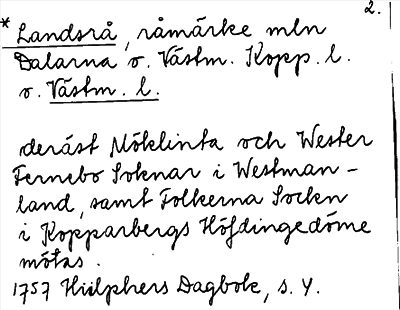 2.
* Landsrå, råmärke mln
Dalarna o. Västm. Kopp. l.
o. Västm. l.
deräst Möklinta och Wester
Fernebo Soknar i Westman-
land, samt Folkerna Sockn
i Kopparbergs Höfdingedöme
mötas.
1757 Hülphers Dagbok, s. 4.